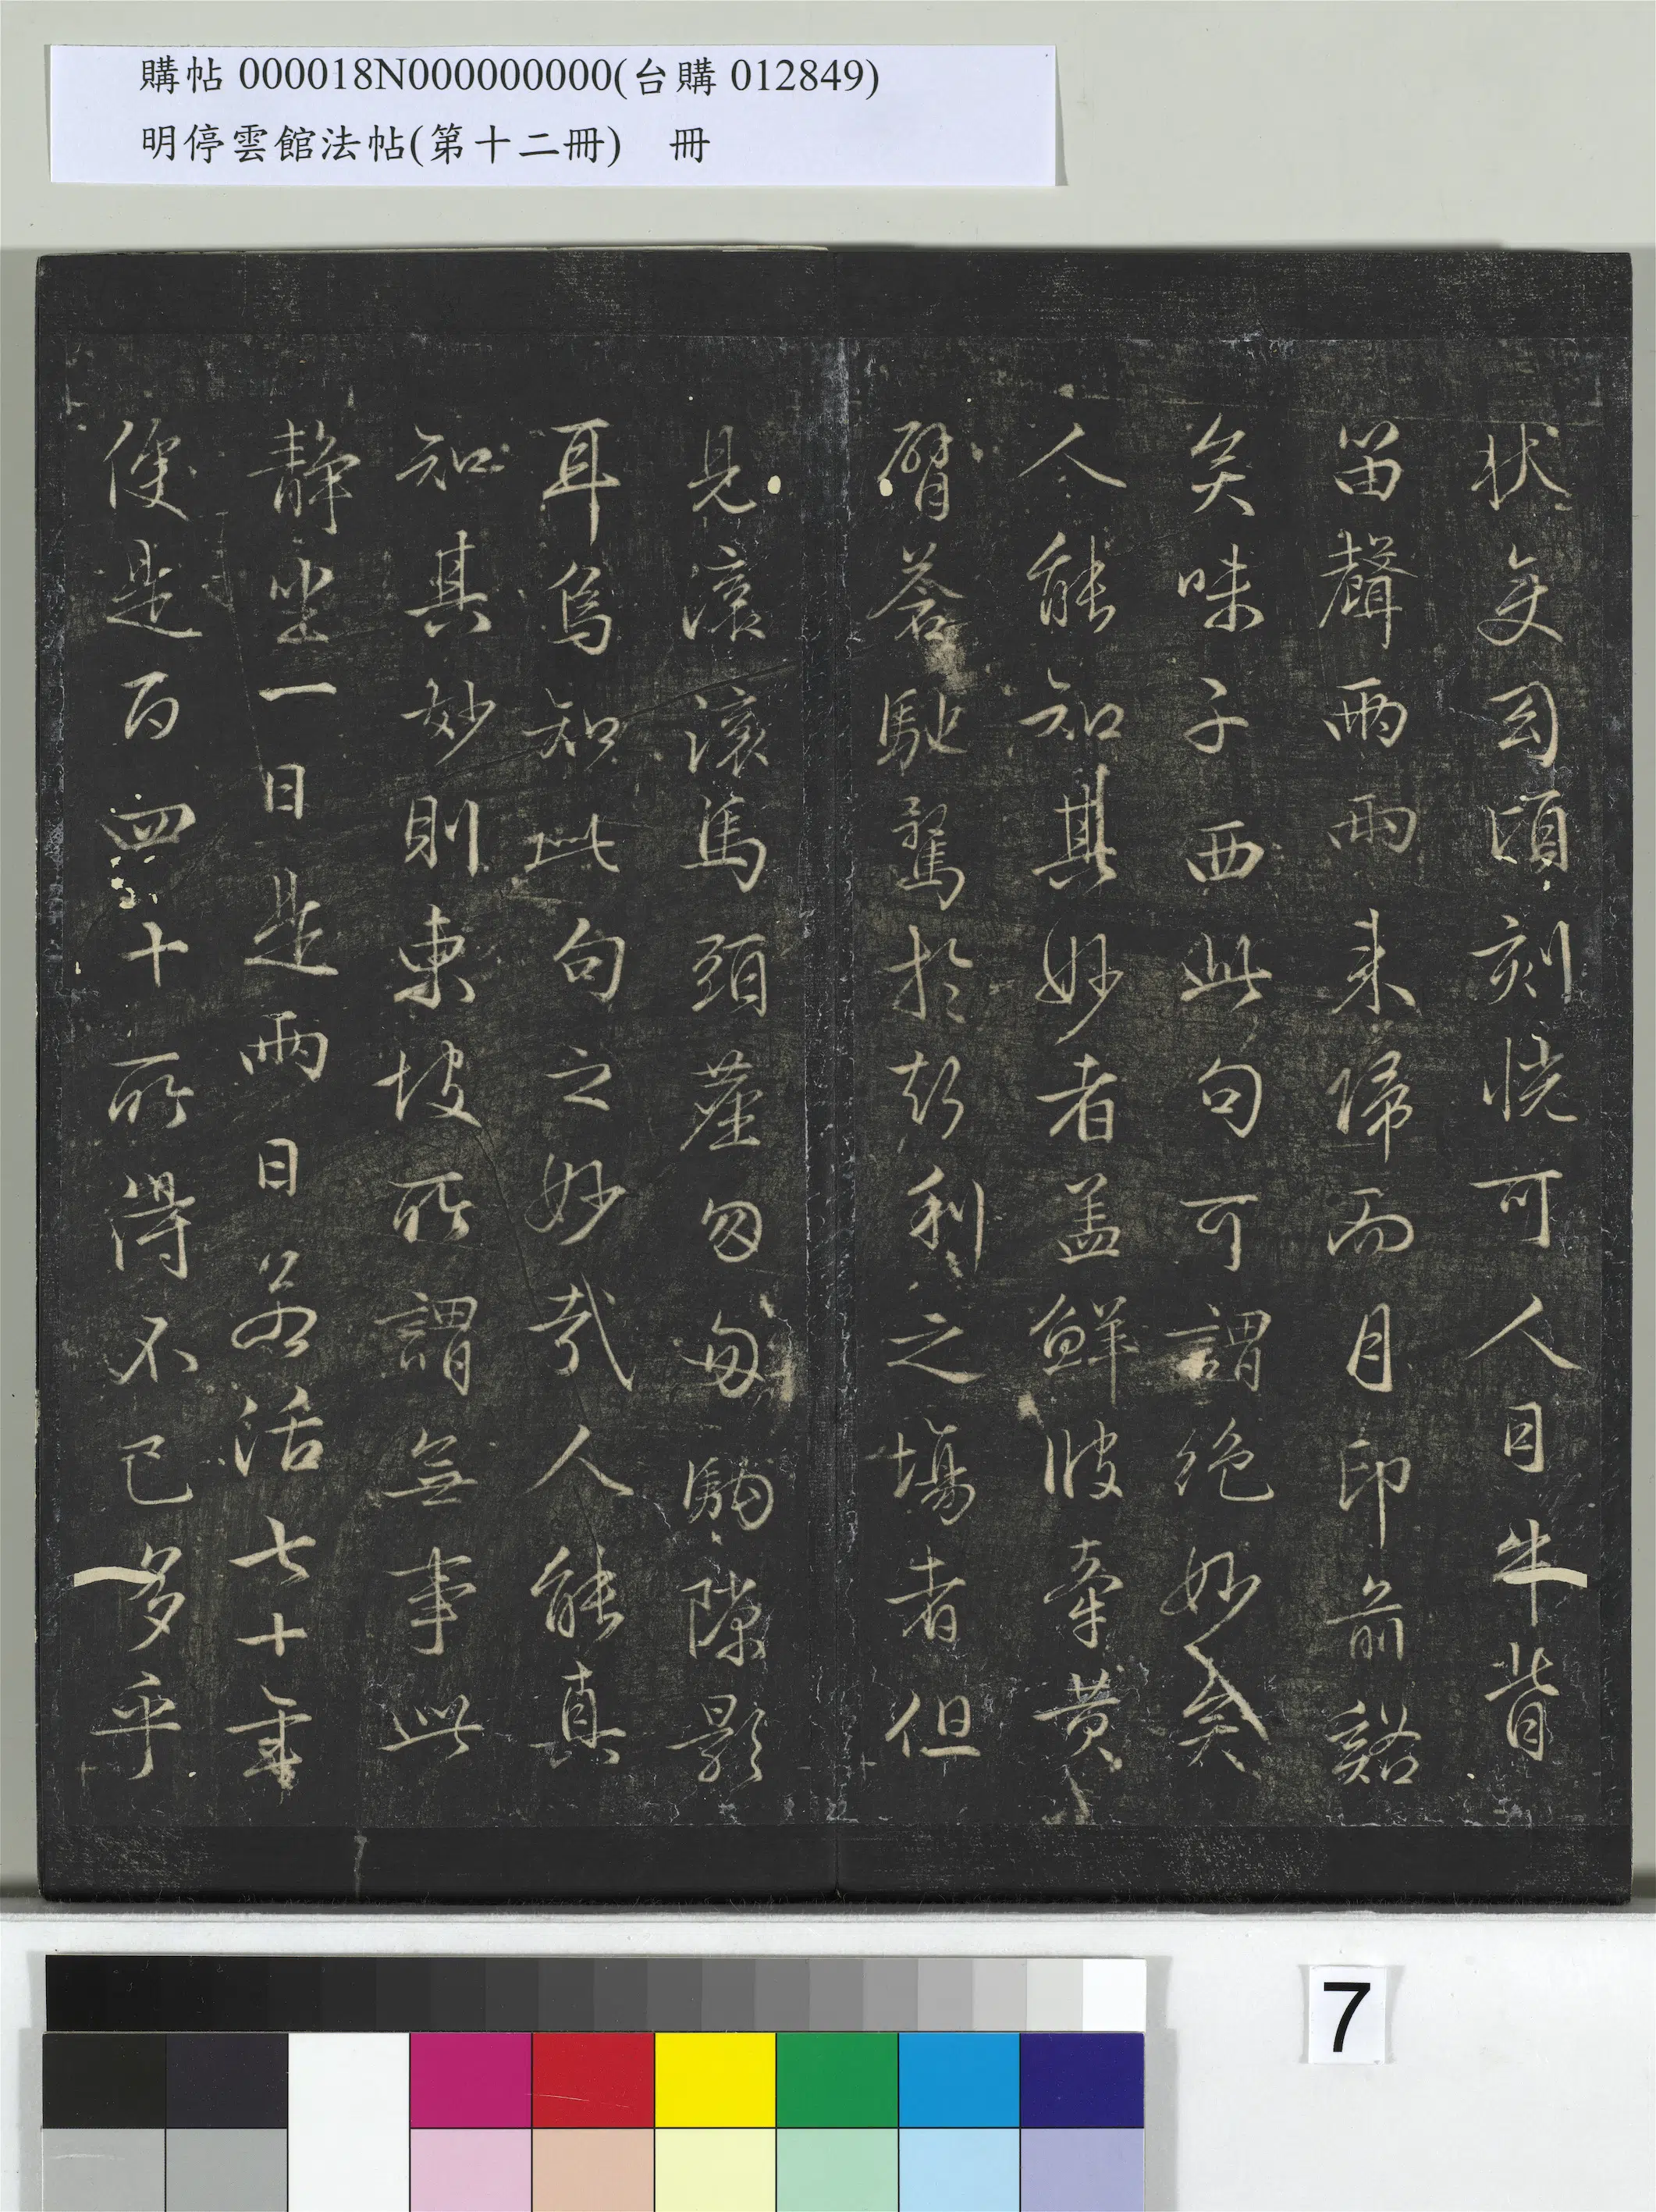 購帖 000018N000000000(台購 012849)
明停雲館法帖(第十二冊) 冊
狀変幻頃刻恍可人目牛背
笛聲兩兩来歸而月印前谿
矣味子西此句可謂絶妙矣
人能知其妙者盖鮮彼牽黄
臂蒼馳騖於聲利之塲者但
見滾滾馬頭塵匆匆駒隙影
耳烏知此句之妙哉人能真
知其妙則東坡所謂無事此
靜坐一日是兩日若活七十年
便是百四十所得不已多乎
7